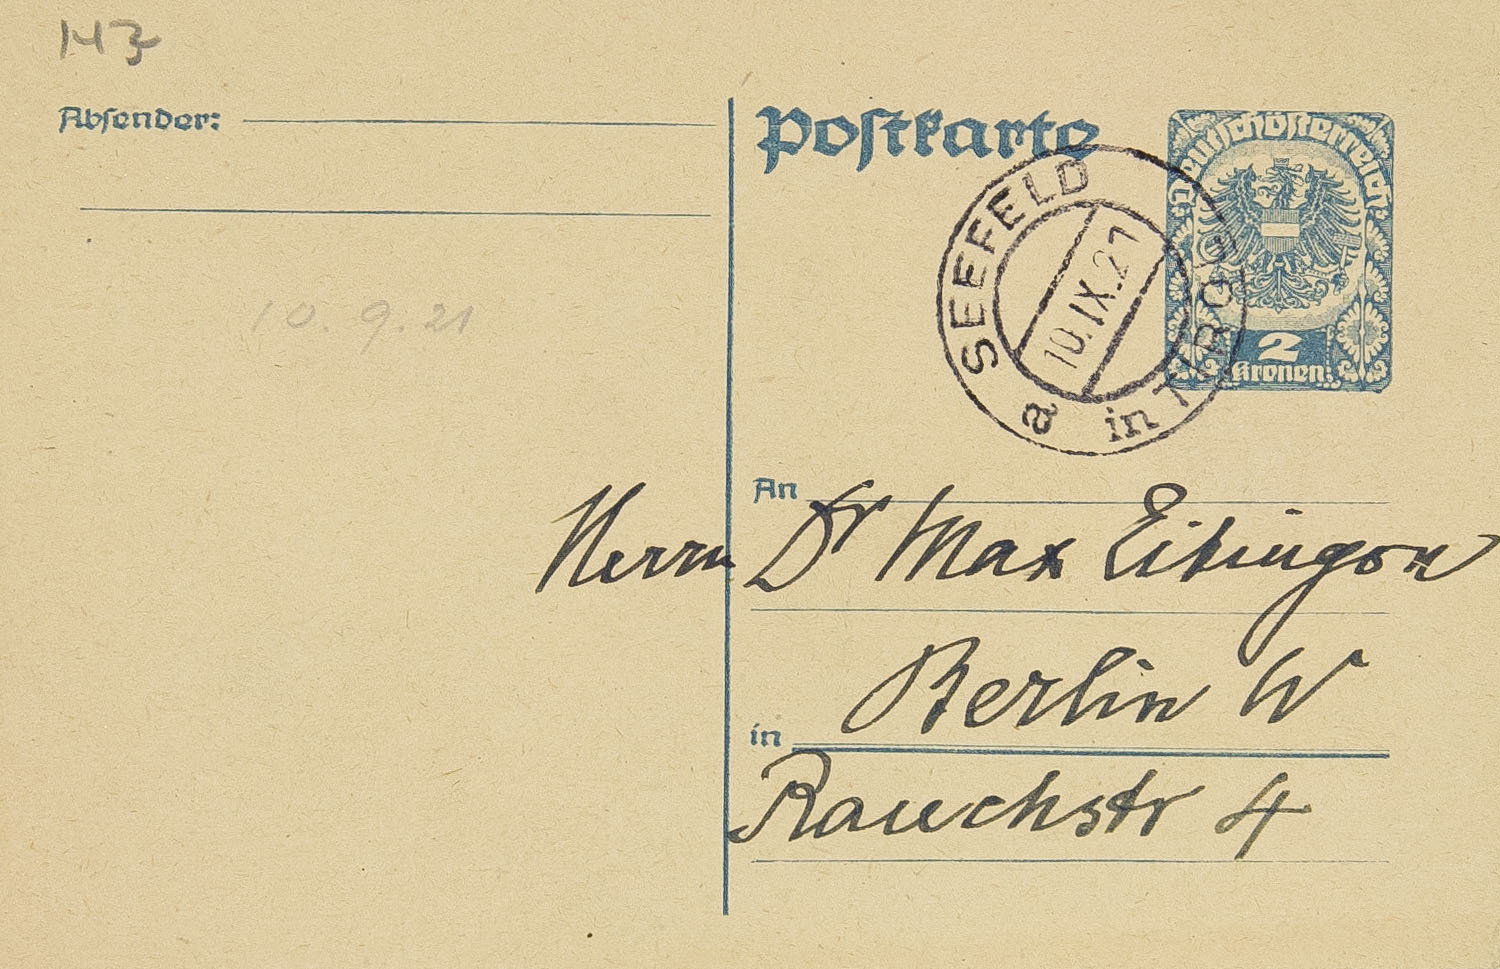 143
Absender:
Postkarte
Deutschösterreich
2
Kronen
SEEFELD
in TIROL
a
10.IX.21
10.9.21
An
Herrn Dr Max Eitingon
Berlin W
in
Rauchstr 4